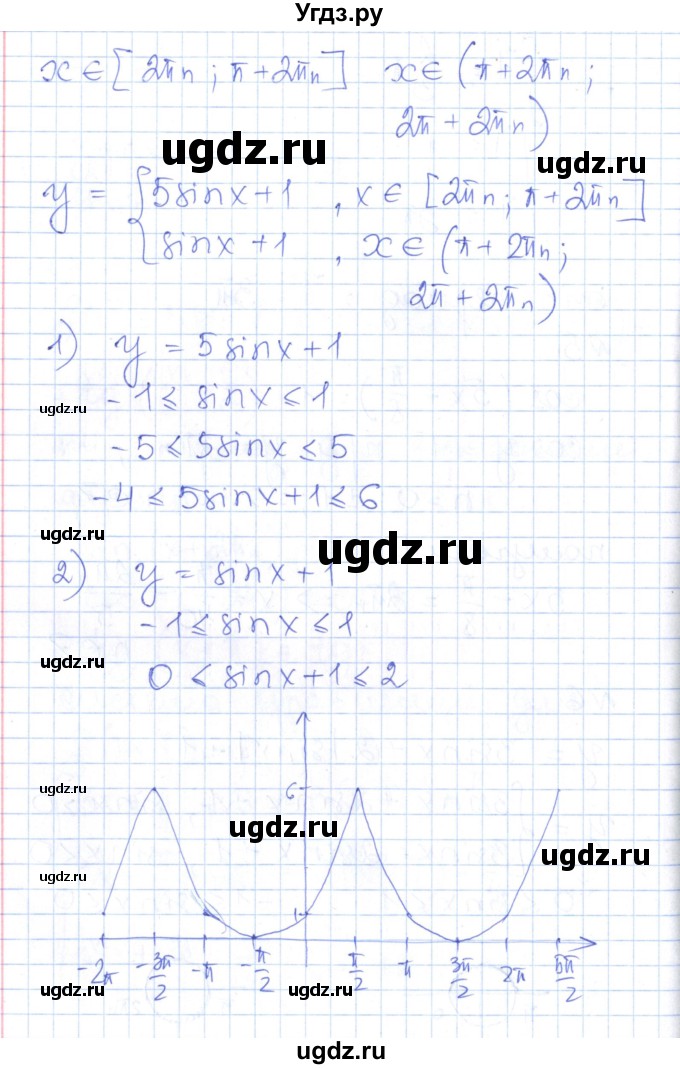 Угдз.ру
x ∈ [2πn ; π+2πn]   x ∈ (π+2πn ;
2π + 2πn)
ugdz.ru
ugdz.ru
y = { 5sinx+1 , x ∈ [2πn ; π+2πn]
sinx +1 , x ∈ (π + 2πn ;
2π + 2πn)
1) y = 5sinx+1
-1 ≤ sinx ≤ 1
ugdz.ru
-5 ≤ 5sinx ≤ 5
-4 ≤ 5sinx+1 ≤ 6
ugdz.ru
ugdz.ru
2) y = sinx+1
-1 ≤ sinx ≤ 1
ugdz.ru
0 ≤ sinx+1 ≤ 2
ugdz.ru
6
ugdz.ru
ugdz.ru
ugdz.ru
1
-2π -3π/2 -π -π/2 π/2 π 3π/2 2π 5π/2
ugdz.ru
ugdz.ru
ugdz.ru
ugdz.ru